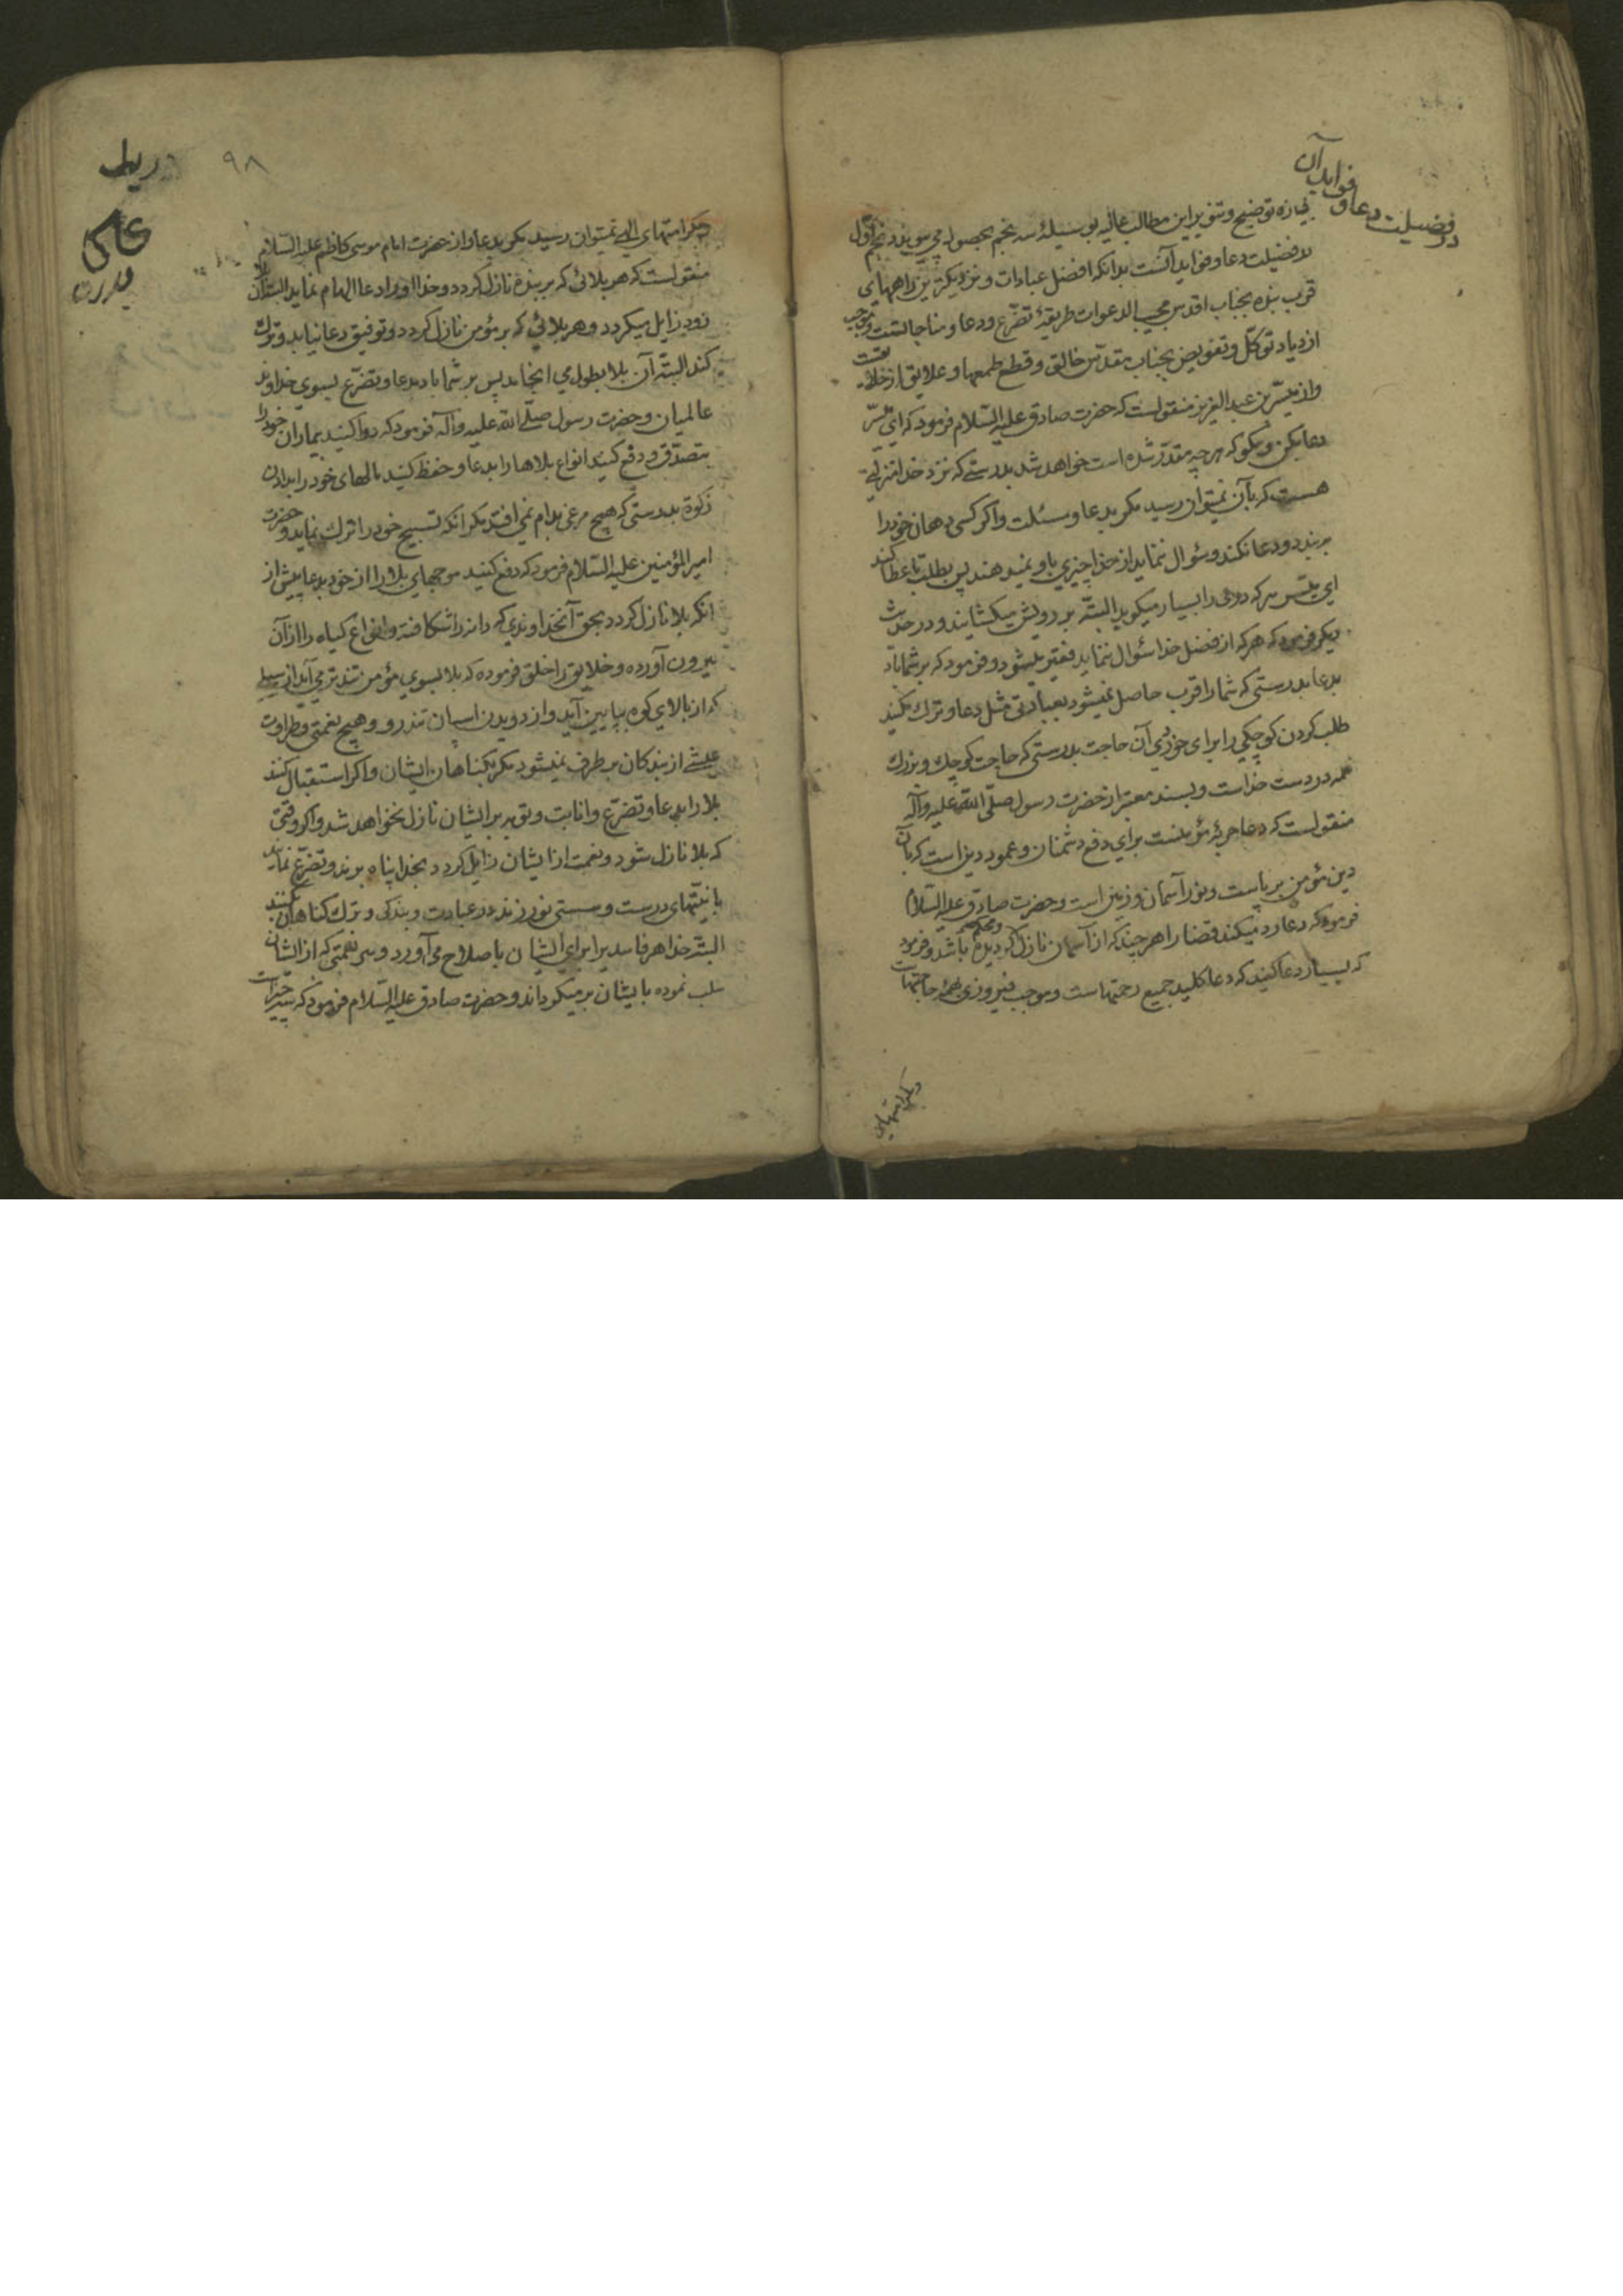 در فضیلت دعا و فواید آن
توضیح و تنویر این مطالب عالیه بوسیلهٔ سه نجم بحصول می پیوندد نجم اول
در فضیلت دعا و فواید آنست بدانکه افضل عبادات و نزدیکترین راههای
قرب بنده بجناب اقدس مجیب الدعوات طریقهٔ تضرع و دعا و مناجاتست و موجب
ازدیاد توکل و تفویض بجناب مقدس خالق و قطع طمعها و علایق از خلایقست
و از میسر بن عبد العزیز منقولست که حضرت صادق علیه السلام فرمود که ای میسر
دعا بکن و مگو که هر چه مقدر شده است خواهد شد بدرستی که نزد خدا منزلتی
هست که بآن نمیتوان رسید مگر بدعا و مسئلت و اگر کسی دهان خود را
ببندد و دعا نکند و سؤال ننماید از خدا چیزی باو نمیدهند پس بطلب تا عطا کند
ای میسر هر که دری را بسیار میکوبد البته بر رویش میکشایند و در حدیث
دیگر فرمود که هر که از فضل خدا سؤال ننماید فقیر میشود و فرمود که بر شما باد
بدعا بدرستی که شما را قرب حاصل نمیشود بعبادتی مثل دعا و ترک مکنید
طلب کردن کوچکی را برای خوردی آن حاجت بدرستی که حاجت کوچک و بزرک
همه در دست خداست و بسند معتبر از حضرت رسول صلی الله علیه و آله
منقولست که دعا حربهٔ مؤمنست برای دفع دشمنان و عمود دین است که بآن
دین مؤمن برپاست و نور آسمان و زمین است و حضرت صادق علیه السلام
فرمود که دعا رد میکند قضا را هر چند که از آسمان نازل کردیده و محکم باشد و فرمود
که بسیار دعا کنید که دعا کلید جمیع رحمتهاست و موجب فیروزی بهمه حاجتهاست
و بکرامتهای
۹۸
و بکرامتهای الهی نمیتوان رسید مکر بدعا و از حضرت امام موسی کاظم علیه السلام
منقولست که هر بلائی که بر بنده نازل کردد و خدا او را دعا الهام نماید البته آن بلا
زود زایل میکردد و هر بلائی که بر مؤمن نازل کردد و توفیق دعا نیابد و ترک
کند البته آن بلا بطول می انجامد پس بر شما باد بدعا و تضرع بسوی خداوند
عالمیان و حضرت رسول صلی الله علیه و آله فرمود که دوا کنید بیماران خود را
بتصدق و دفع کنید انواع بلاها را بدعا و حفظ کنید مالهای خود را بدادن
زکوة بدرستی که هیچ مرغی بدام نمی افتد مکر انکه تسبیح خود را ترک نماید و حضرت
امیر المؤمنین علیه السلام فرمود که دفع کنید موجهای بلا را از خود بدعا پیش از
انکه بلا نازل کردد بحق آنخداوندی که دانه را شکافته و انواع کیاه را از آن
بیرون آورده و خلایق را خلق فرموده که بلا بسوی مؤمن تندتر می آید از سیلی
که از بالای کوه بپایین آید و از دویدن اسپان تندرو و هیچ نعمتی و طراوت
عیشی از بندکان برطرف نمیشود مکر بکناهان ایشان و اکر استقبال کنند
بلا را بدعا و تضرع و انابت و توبه بر ایشان نازل نخواهد شد و اکر وقتی
که بلا نازل شود و نعمت از ایشان زایل کردد بخدا پناه برند و تضرع نمایند
با نیتهای درست و سستی نورزند در عبادت و بندکی و ترک کناهان کنند
البته خدا هر فاسدیرا برای ایشان باصلاح می آورد و هر نعمتی که از ایشان
سلب نموده بایشان برمیکرداند و حضرت صادق علیه السلام فرمود که